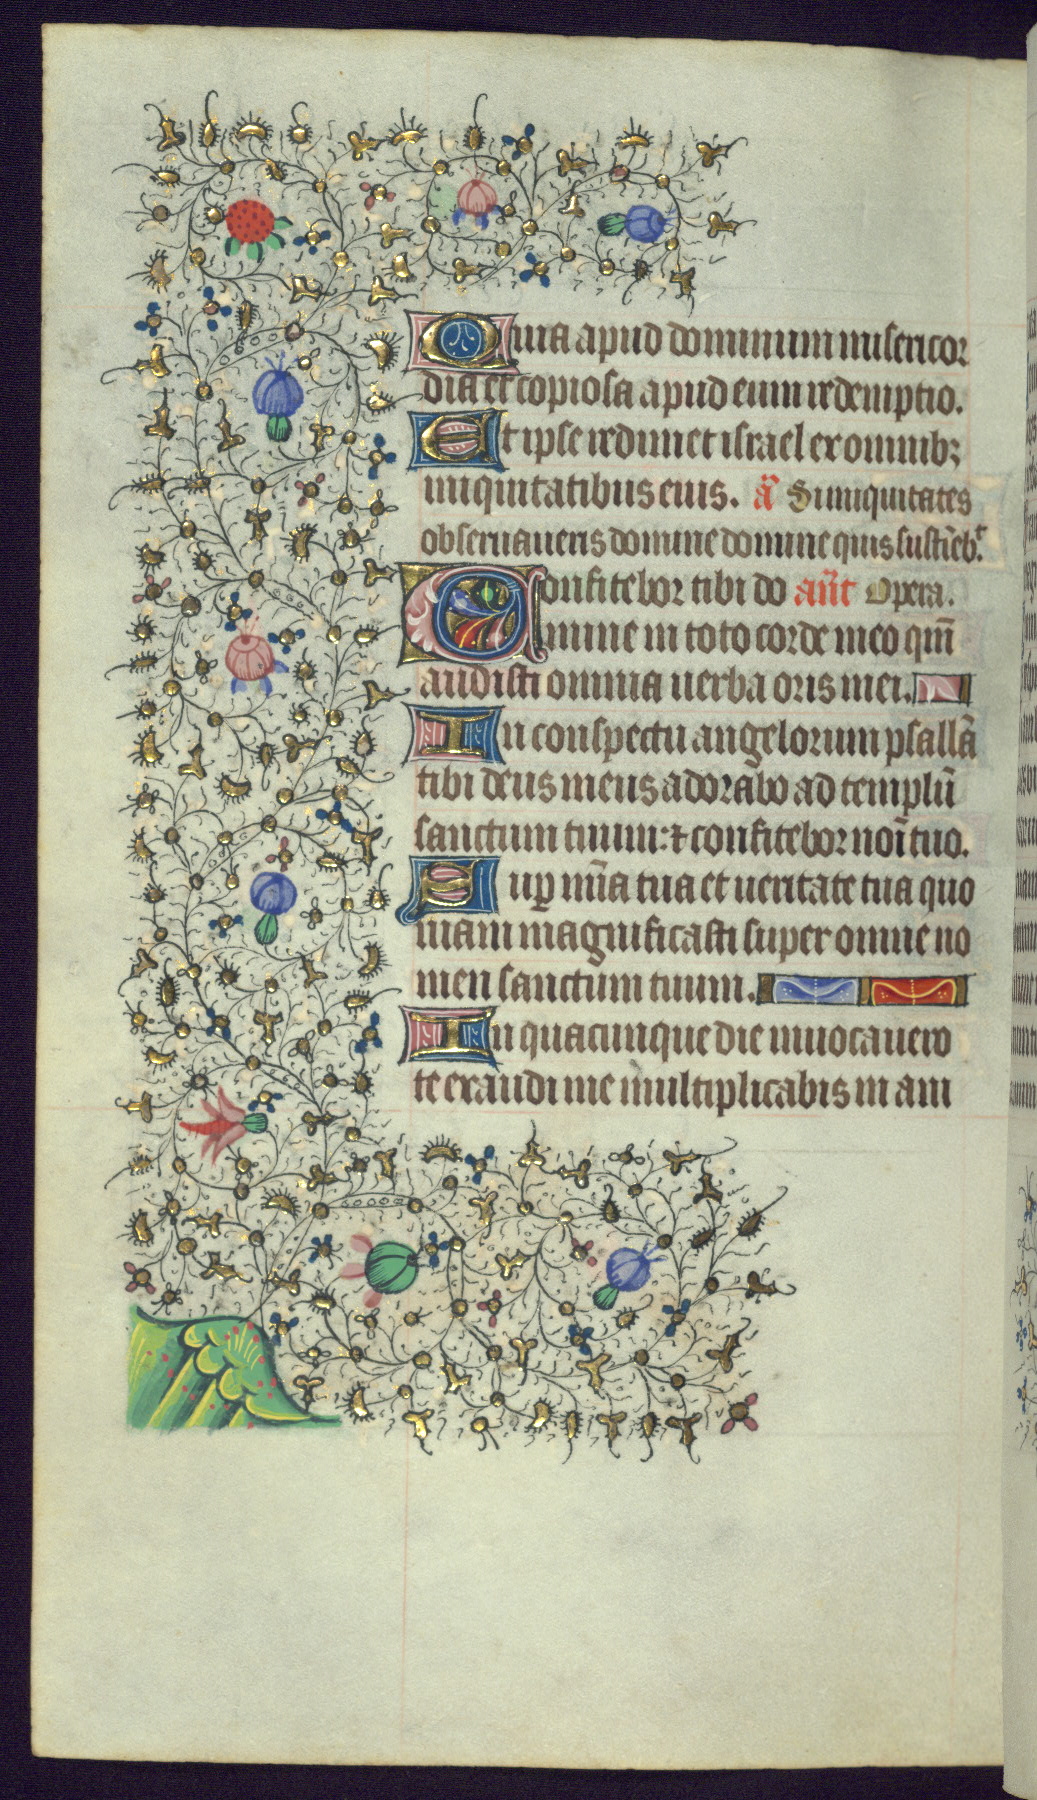 Quia apud dominum misericor
dia et copiosa apud eum redemptio.
Et ipse redimet israel ex omnibꝫ
iniquitatibus eius. ā Si iniquitates
obseruaueris domine domine quis sustīeb.ͭ
Confitebor tibi do añt Opera.
mine in toto corde meo qm̄
audisti omnia uerba oris mei.
In conspectu angelorum psallā
tibi deus meus adorabo ad templū
sanctum tuum: ⁊ confitebor noī tuo.
Suꝑ mīa tua et ueritate tua quo
niam magnificasti super omne no
men sanctum tuum.
In quacunque die inuocauero
te exaudi me multiplicabis in ani